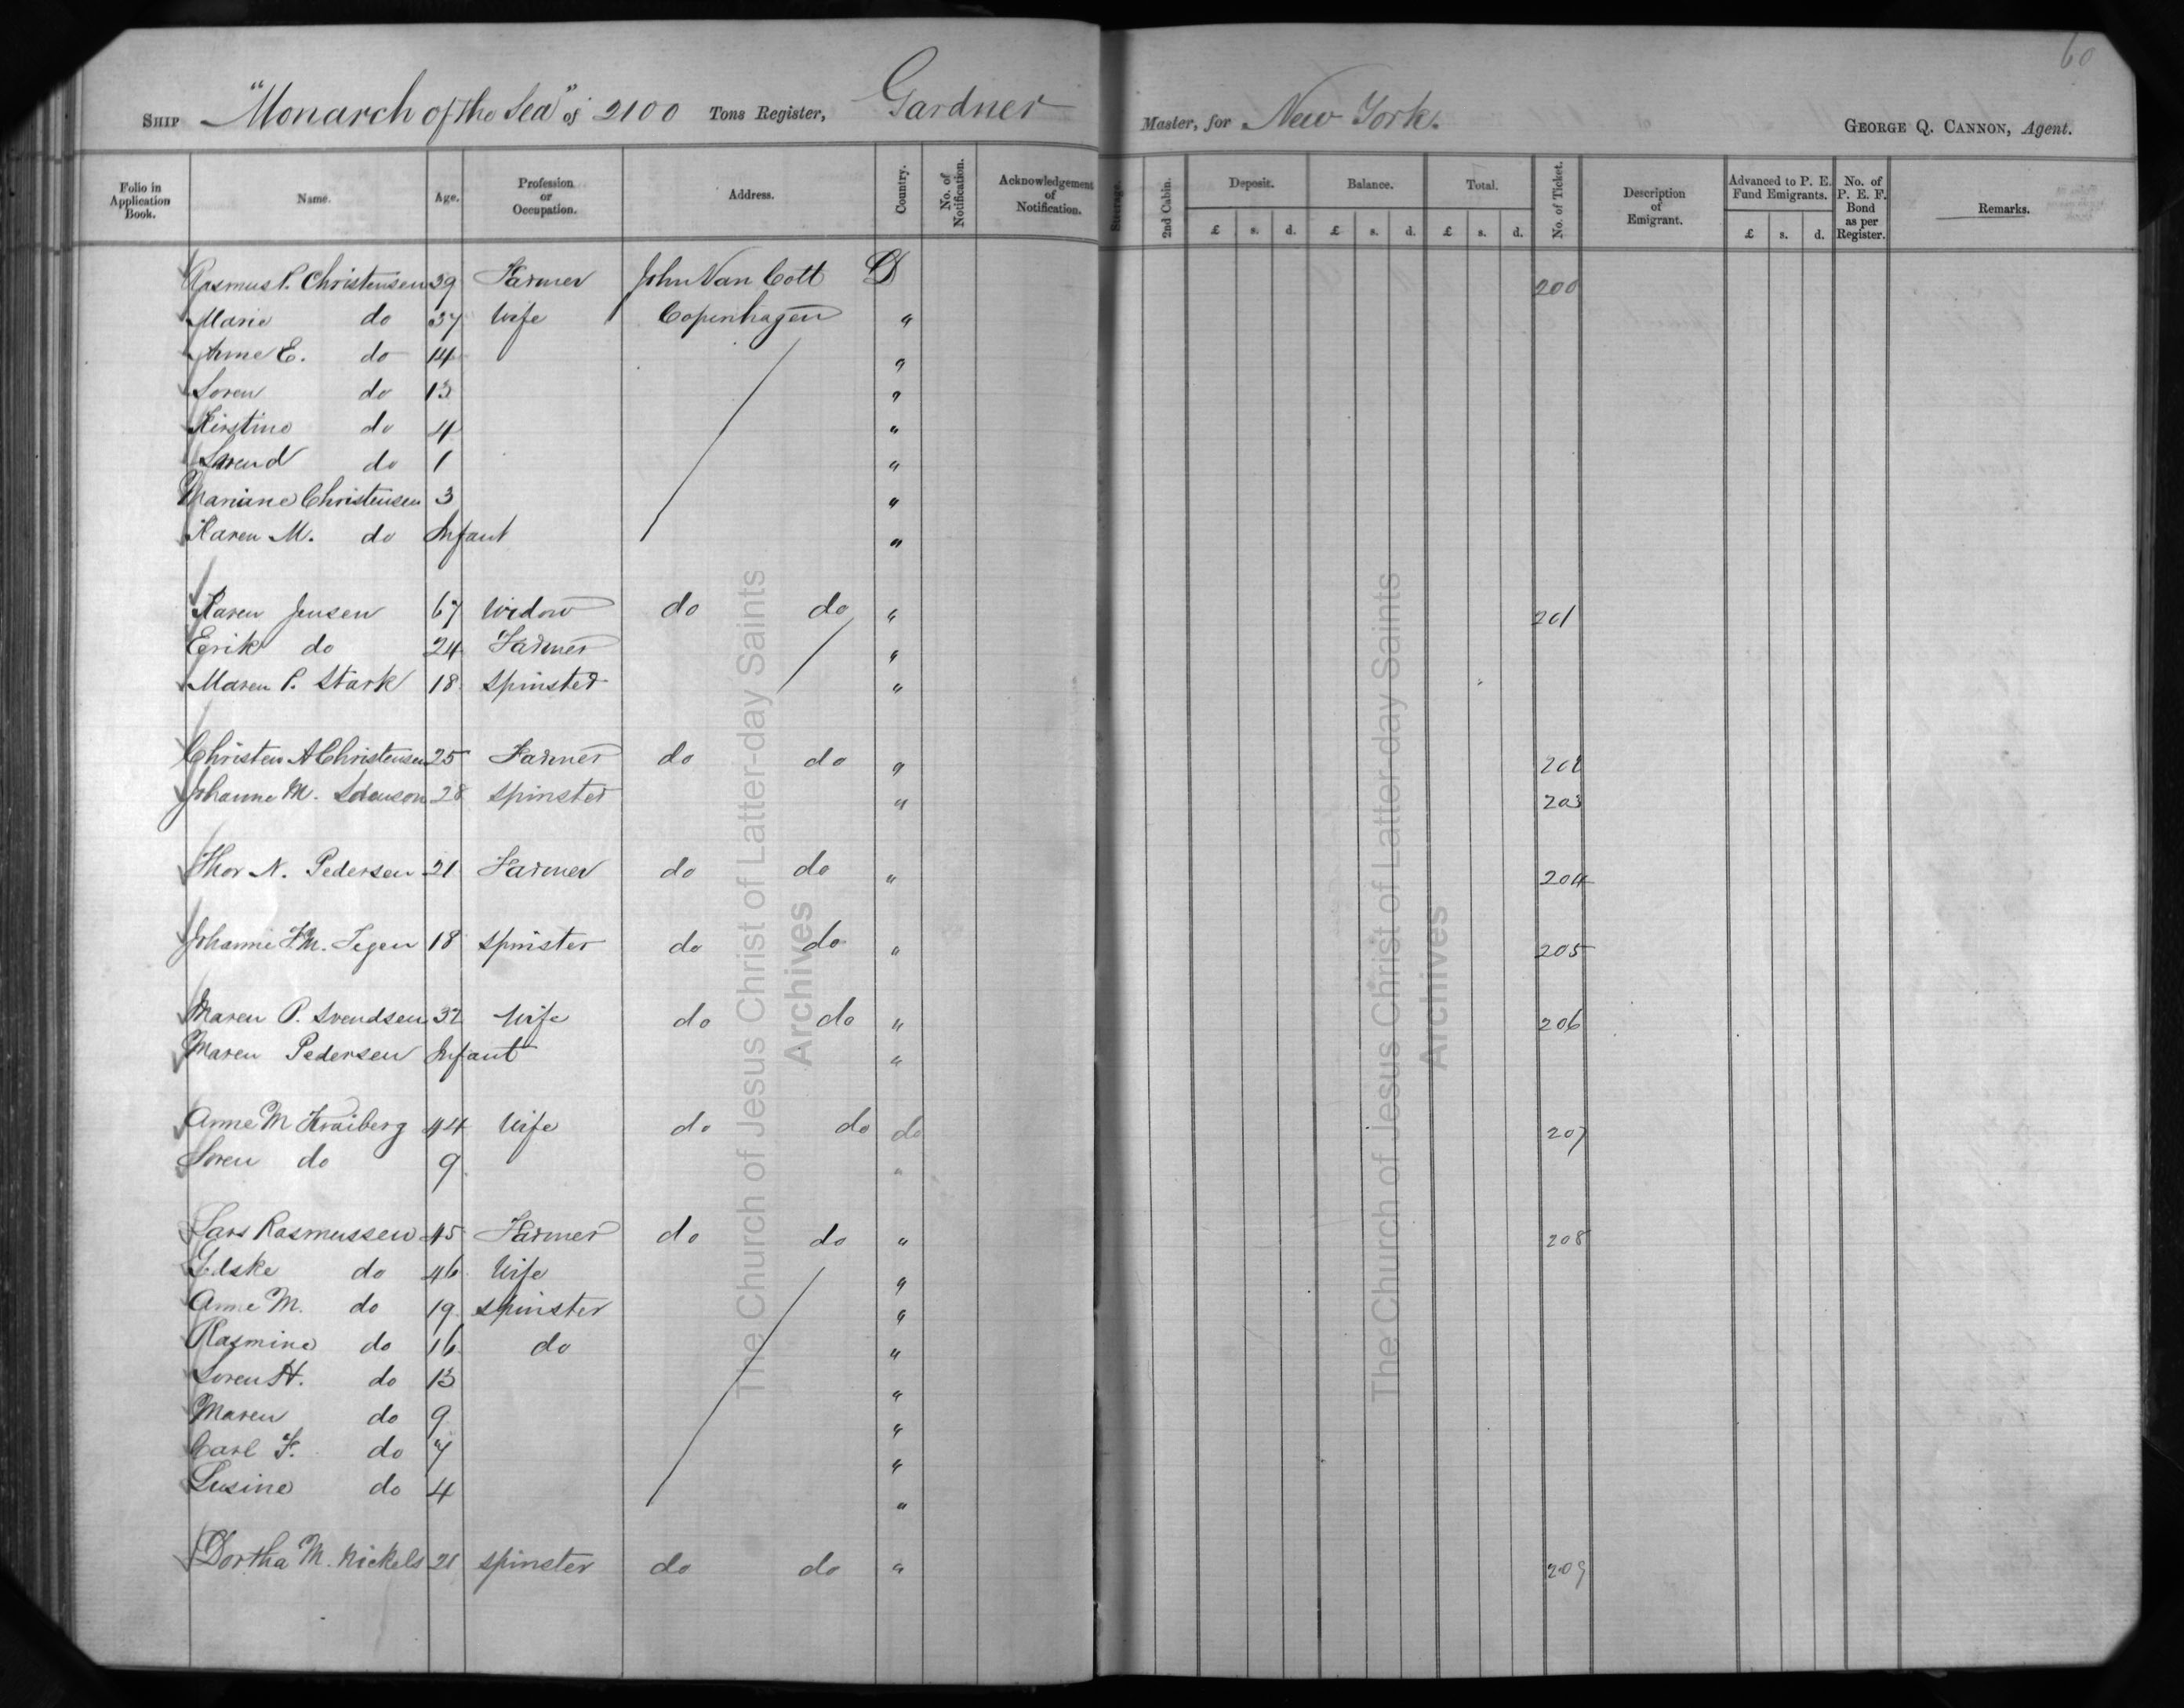 60
SHIP "Monarch of the Sea" of 2100 Tons Register, Gardner Master, for New York. GEORGE Q. CANNON, Agent.
Folio in Application Book. Name. Age. Profession or Occupation. Address. Country. No. of Notification. Acknowledgement of Notification. Steerage. 2nd Cabin. Deposit. Balance. Total. No. of Ticket. Description of Emigrant. Advanced to P. E. Fund Emigrants. No. of P. E. F. Bond as per Register. Remarks.
£ s. d. £ s. d. £ s. d. £ s. d.
Rasmus P. Christensen 39 Farmer John Van Cott D 200
Marie do 37 Wife Copenhagen "
Anne E. do 14 "
Soren do 13 "
Kirstine do 4 "
do 1 "
Mariane Christensen 3 "
Karen M. do Infant "
Karen Jensen 67 Widow do do " 201
Erik do 24 Farmer "
Maren P. Stark 18 Spinster "
Christen A Christensen 25 Farmer do do " 202
Johanne M. Sorenson 28 Spinster " 203
Thor N. Pedersen 21 Farmer do do " 204
Johanne F.M. Tegen 18 Spinster do do " 205
Maren P. Svendsen 32 Wife do do " 206
Maren Pedersen Infant "
Anne M Kraiberg 44 Wife do do do 207
Soren do 9 "
Lars Rasmussen 45 Farmer do do " 208
Elske do 46 Wife "
Anne M. do 19 Spinster "
Rasmine do 16 do "
Soren H. do 13 "
Maren do 9 "
Carl F. do 7 "
Lusine do 4 "
Dortha M. Nickels 21 Spinster do do " 209
The Church of Jesus Christ of Latter-day Saints
Archives
The Church of Jesus Christ of Latter-day Saints
Archives